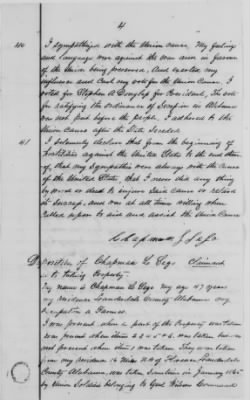 4
40 I sympathized with the Union cause. My feeling
and language was against the war and in favor
of the Union being preserved. And exerted my
influence and cast my vote for the Union Cause. I
voted for Stephen A Douglas for President, The vote
for ratifying the ordinance of Secession in Alabama
was not put before the people. I adhered to the
Union Cause after the State Seceded
41 I solemnly declare that from the beginning of
hostilities against the United States to the end there
of, that my sympathies were always with the cause
of the United States, that I never did any thing
by word or deed to injure said cause or retard
its success, and was at all times willing when
called upon to aid and assist the Union Cause
Chapman
Deposition of Chapman Claimant
as to taking Property.
My name is Chapman my age 47 years
my residence Lauderdale County Alabama my
occupation a Farmer
I was present when a part of the Property was taken
was present when items 2 4 5 & 6 was taken but was
not present when items was taken. They was taken
from my residence 16 Miles N.W. of Florence Lauderdale
County Alabama, was taken Sometime in January 1865
by Union Soldiers belonging to Genl Wilson Command